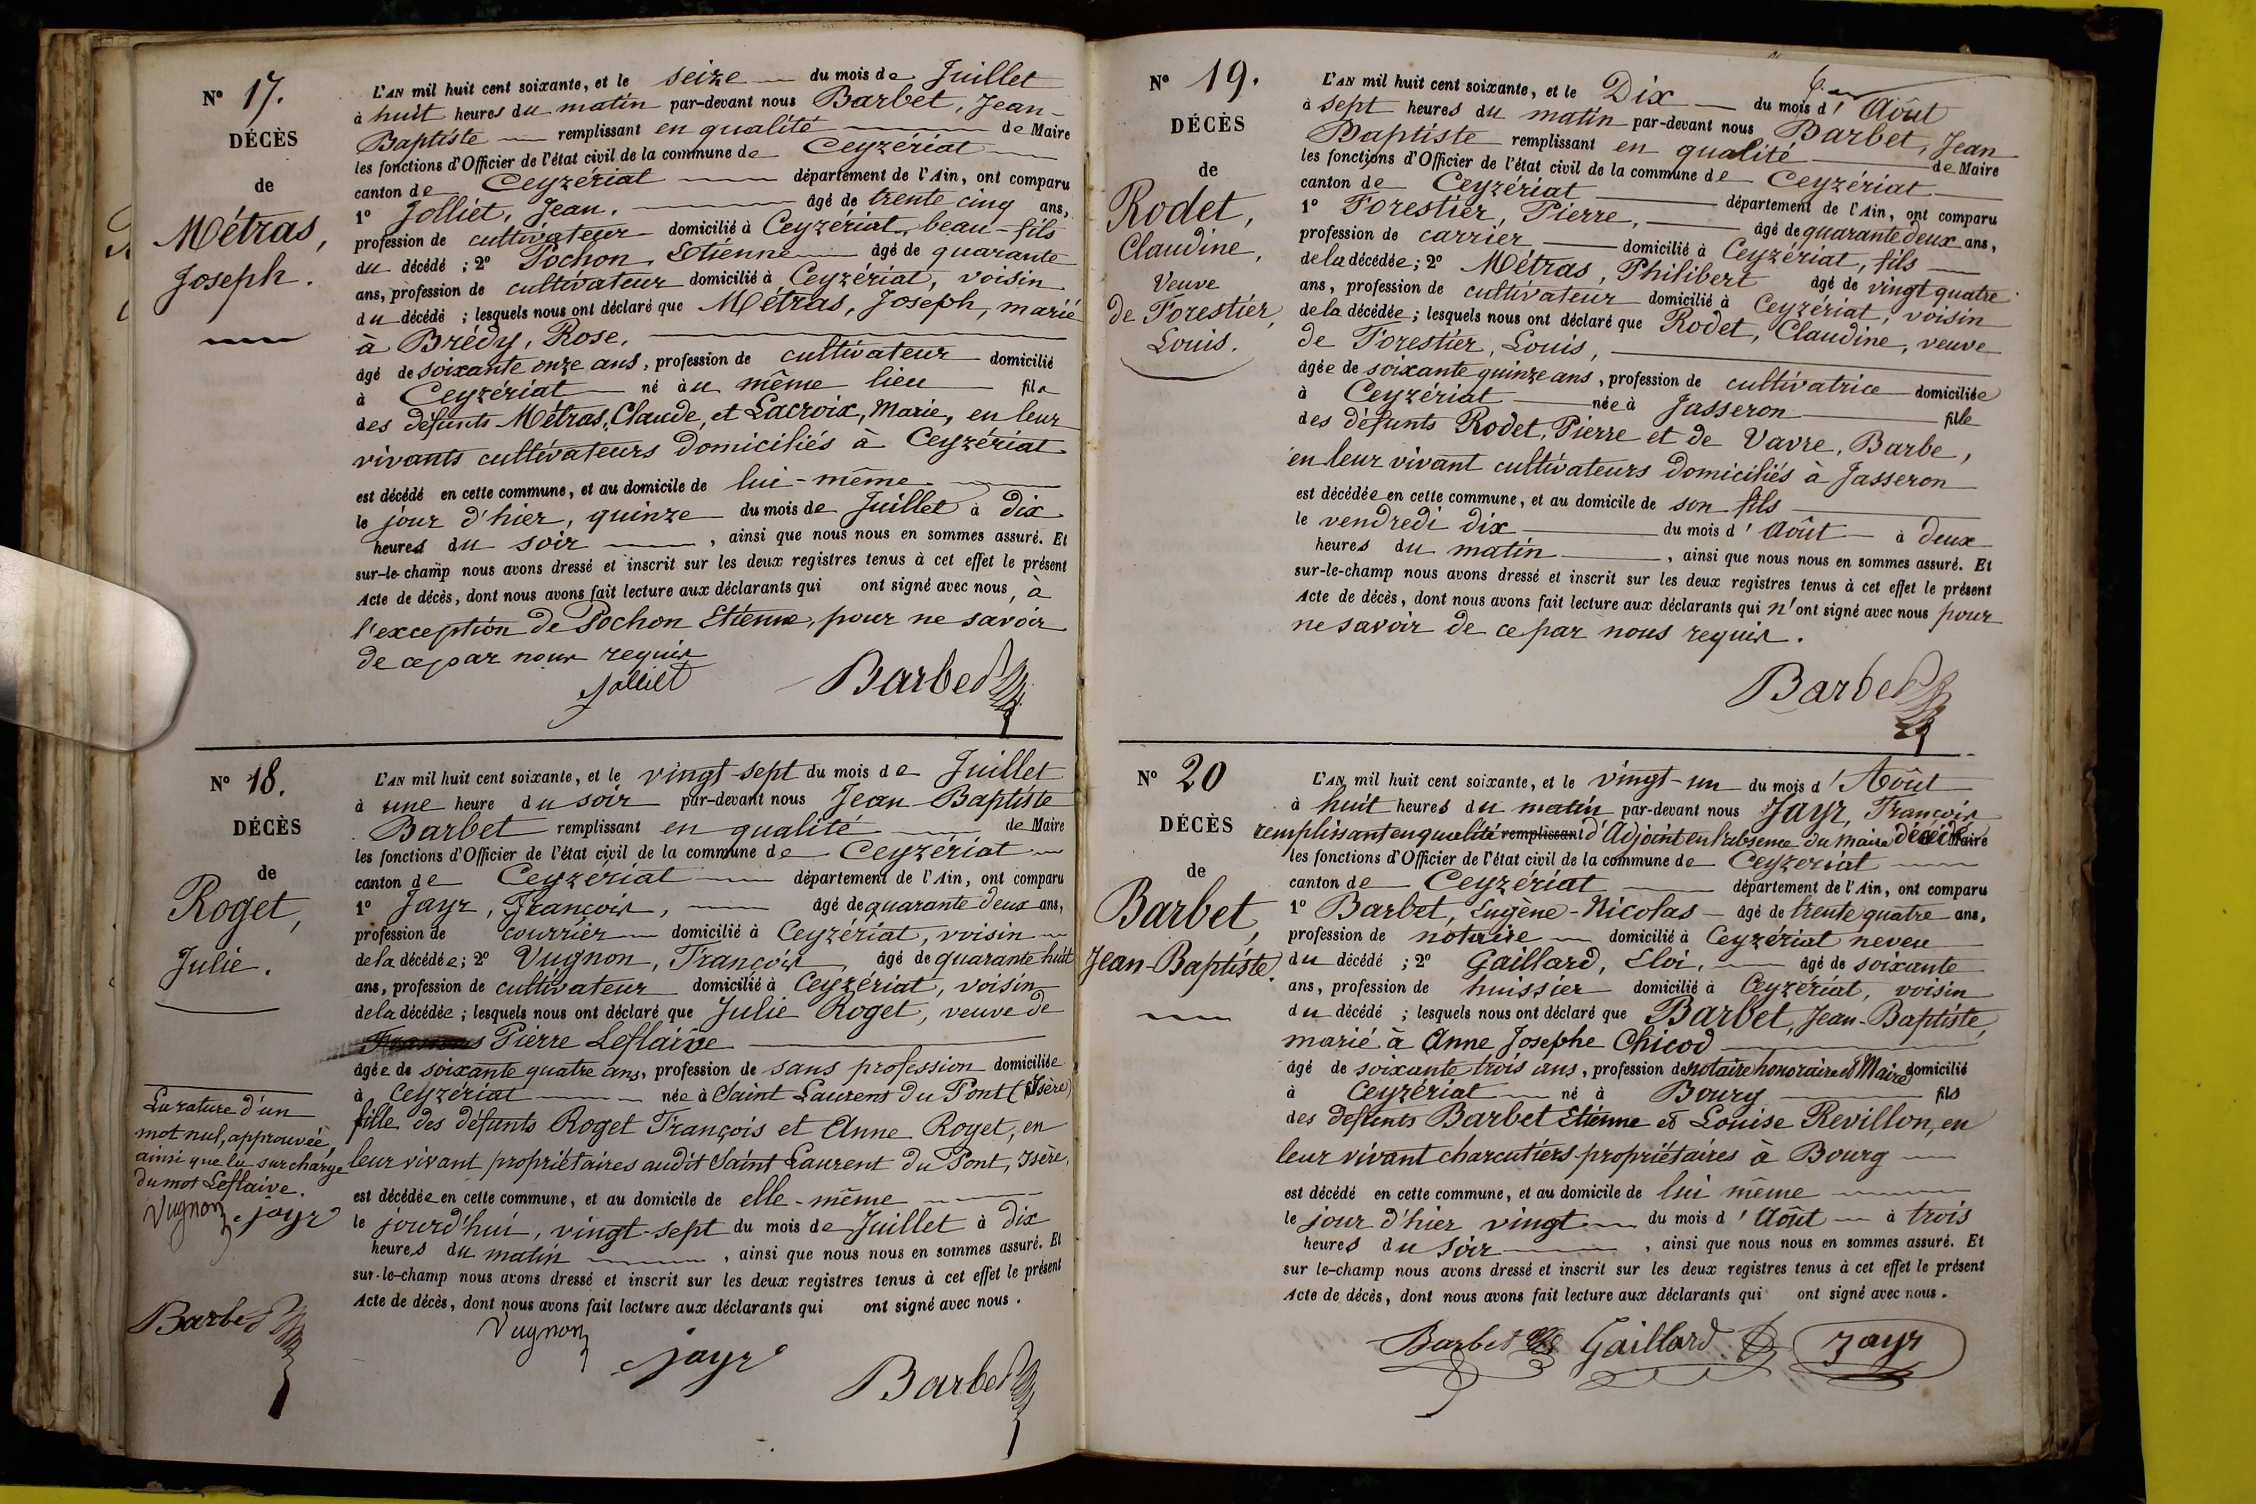 N° 17.
DÉCÈS
de
Métras,
Joseph.
L'AN mil huit cent soixante, et le seize du mois de Juillet
à huit heures du matin par-devant nous Barbet, Jean-
Baptiste remplissant en qualité de Maire
les fonctions d'Officier de l'état civil de la commune de Ceyzériat
canton de Ceyzériat département de l'Ain, ont comparu
1° Jolliet, Jean, âgé de trente cinq ans,
profession de cultivateur domicilié à Ceyzériat, beau-fils
du décédé ; 2° Pochon, Etienne âgé de quarante
ans, profession de cultivateur domicilié à Ceyzériat, voisin
du décédé ; lesquels nous ont déclaré que Métras, Joseph, marié
à Brédy, Rose,
âgé de soixante onze ans, profession de cultivateur domicilié
à Ceyzériat né au même lieu fils
des défunts Métras, Claude, et Lacroix, Marie, en leur
vivants cultivateurs domiciliés à Ceyzériat
est décédé en cette commune, et au domicile de lui-même
le jour d'hier, quinze du mois de Juillet à dix
heures du soir , ainsi que nous nous en sommes assuré. Et
sur-le-champ nous avons dressé et inscrit sur les deux registres tenus à cet effet le présent
Acte de décès, dont nous avons fait lecture aux déclarants qui ont signé avec nous, à
l'exception de Pochon Etienne, pour ne savoir
de ce par nous requis
Jolliet Barbet
N° 18.
DÉCÈS
de
Roget,
Julie.
La rature d'un
mot nul, approuvée,
ainsi que la surcharge
du mot Leflaive.
Vugnon Jayr
Barbet
L'AN mil huit cent soixante, et le vingt-sept du mois de Juillet
à une heure du soir par-devant nous Jean-Baptiste
Barbet remplissant en qualité de Maire
les fonctions d'Officier de l'état civil de la commune de Ceyzériat
canton de Ceyzériat département de l'Ain, ont comparu
1° Jayr, François, âgé de quarante deux ans,
profession de courrier domicilié à Ceyzériat, voisin
de la décédée ; 2° Vugnon, François âgé de quarante huit
ans, profession de cultivateur domicilié à Ceyzériat, voisin
de la décédée ; lesquels nous ont déclaré que Julie Roget, veuve de
Pierre Leflaive
âgée de soixante quatre ans, profession de sans profession domiciliée
à Ceyzériat née à Saint Laurent du Pont (Isère)
fille des défunts Roget François et Anne Roget, en
leur vivant propriétaires audit Saint Laurent du Pont, Isère,
est décédée en cette commune, et au domicile de elle-même
le jourd'hui, vingt-sept du mois de Juillet à dix
heures du matin , ainsi que nous nous en sommes assuré. Et
sur-le-champ nous avons dressé et inscrit sur les deux registres tenus à cet effet le présent
Acte de décès, dont nous avons fait lecture aux déclarants qui ont signé avec nous.
Vugnon
Jayr
Barbet
N° 19.
DÉCÈS
de
Rodet,
Claudine,
Veuve
de Forestier,
Louis.
L'AN mil huit cent soixante, et le Dix du mois d'Août
à sept heures du matin par-devant nous Barbet, Jean
Baptiste remplissant en qualité de Maire
les fonctions d'Officier de l'état civil de la commune de Ceyzériat
canton de Ceyzériat département de l'Ain, ont comparu
1° Forestier, Pierre, âgé de quarante deux ans,
profession de carrier domicilié à Ceyzériat, fils
de la décédée ; 2° Métras, Philibert âgé de vingt quatre
ans, profession de cultivateur domicilié à Ceyzériat, voisin
de la décédée ; lesquels nous ont déclaré que Rodet, Claudine, veuve
de Forestier, Louis,
âgée de soixante quinze ans, profession de cultivatrice domiciliée
à Ceyzériat née à Jasseron fille
des défunts Rodet, Pierre et de Vavre, Barbe,
en leur vivant cultivateurs domiciliés à Jasseron
est décédée en cette commune, et au domicile de son fils
le vendredi dix du mois d'Août à deux
heures du matin , ainsi que nous nous en sommes assuré. Et
sur-le-champ nous avons dressé et inscrit sur les deux registres tenus à cet effet le présent
Acte de décès, dont nous avons fait lecture aux déclarants qui n'ont signé avec nous pour
ne savoir de ce par nous requis.
Barbet
N° 20
DÉCÈS
de
Barbet,
Jean-Baptiste.
L'AN mil huit cent soixante, et le vingt-un du mois d'Août
à huit heures du matin par-devant nous Jayr, François
remplissant en qualité remplissant d'Adjoint en l'absence du Maire décédé Maire
les fonctions d'Officier de l'état civil de la commune de Ceyzeriat
canton de Ceyzériat département de l'Ain, ont comparu
1° Barbet, Eugène-Nicolas âgé de trente quatre ans,
profession de notaire domicilié à Ceyzériat neveu
du décédé ; 2° Gaillard, Eloi, âgé de soixante
ans, profession de huissier domicilié à Ceyzériat, voisin
du décédé ; lesquels nous ont déclaré que Barbet, Jean-Baptiste,
marié à Anne Josephe Chicod
âgé de soixante trois ans, profession de notaire honoraire et Maire domicilié
à Ceyzériat né à Bourg fils
des défunts Barbet Etienne et Louise Revillon, en
leur vivant charcutiers propriétaires à Bourg
est décédé en cette commune, et au domicile de lui même
le jour d'hier vingt du mois d'Août à trois
heures du soir , ainsi que nous nous en sommes assuré. Et
sur le-champ nous avons dressé et inscrit sur les deux registres tenus à cet effet le présent
Acte de décès, dont nous avons fait lecture aux déclarants qui ont signé avec nous.
Barbet Gaillard Jayr